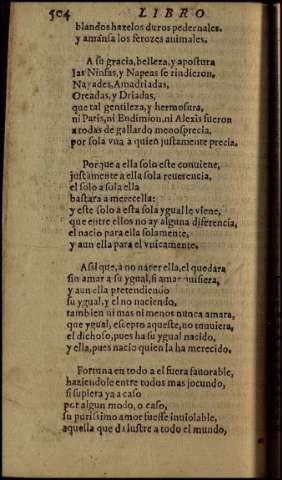 504 LIBRO
blandos hazelos duros pedernales.
y amansa los ferozes animales.
A su gracia, belleza, y apostura
las Ninfas, y Napeas se rindieron.
Nayades, Amadriadas,
Oreadas, y Driadas,
que tal gentileza, y hermosura,
ni Paris, ni Endimion, ni Alexis fueron
a todas de gallardo menosprecia,
por sola vna a quien justamente precia.
Porque a ella solo este conuiene,
justamente a ella sola reuerencia,
el solo a sola ella
bastara a merecella:
y este solo a esta sola ygual le viene,
que entre ellos no ay alguna diferencia,
el nacio para ella solamente,
y aun ella para el vnicamente.
Assi que, a no nacer ella, el quedara
sin amar a su ygual, si amar quisiera,
y aun ella pretendiendo
su ygual, y el no naciendo,
tambien ni mas ni menos nunca amara,
que ygual, escepto aqueste, no tuuiera,
el dichoso, pues ha su ygual nacido,
y ella, pues nacio quien la ha merecido,
Fortuna en todo a el fuera fauorable,
haziendole entre todos mas jocundo,
si supiera ya a caso
por algun modo, o caso,
su purissimo amor fuesse inuiolable,
aquella que da lustre a todo el mundo,